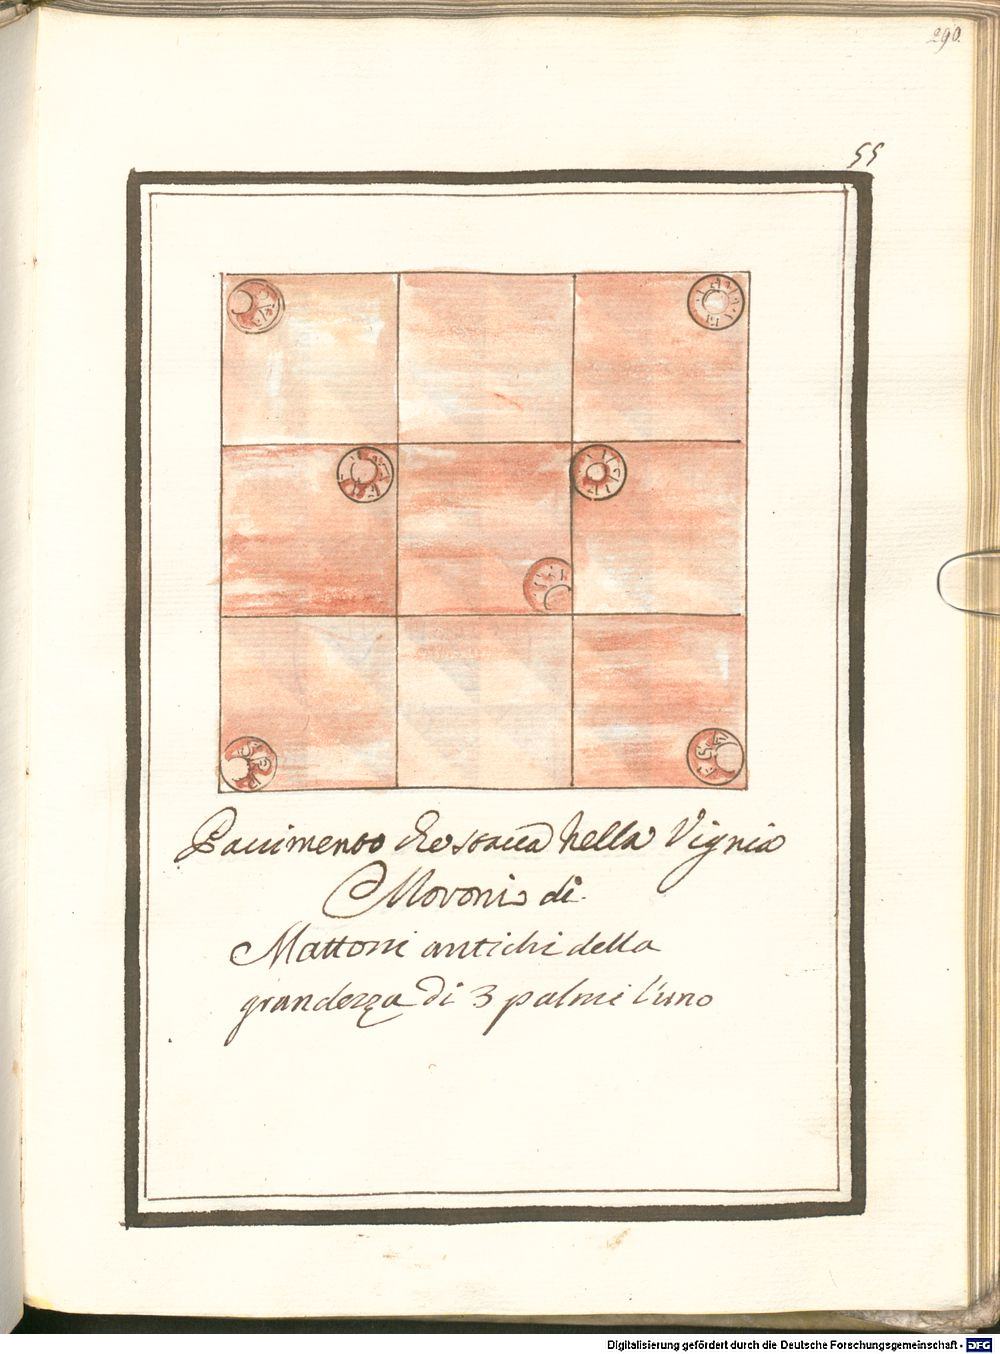 290.
55
Pauimento che staua nella Vignia
Moroni di
Mattoni antichi della
grandezza di 3 palmi l'uno
Digitalisierung gefördert durch die Deutsche Forschungsgemeinschaft - DFG